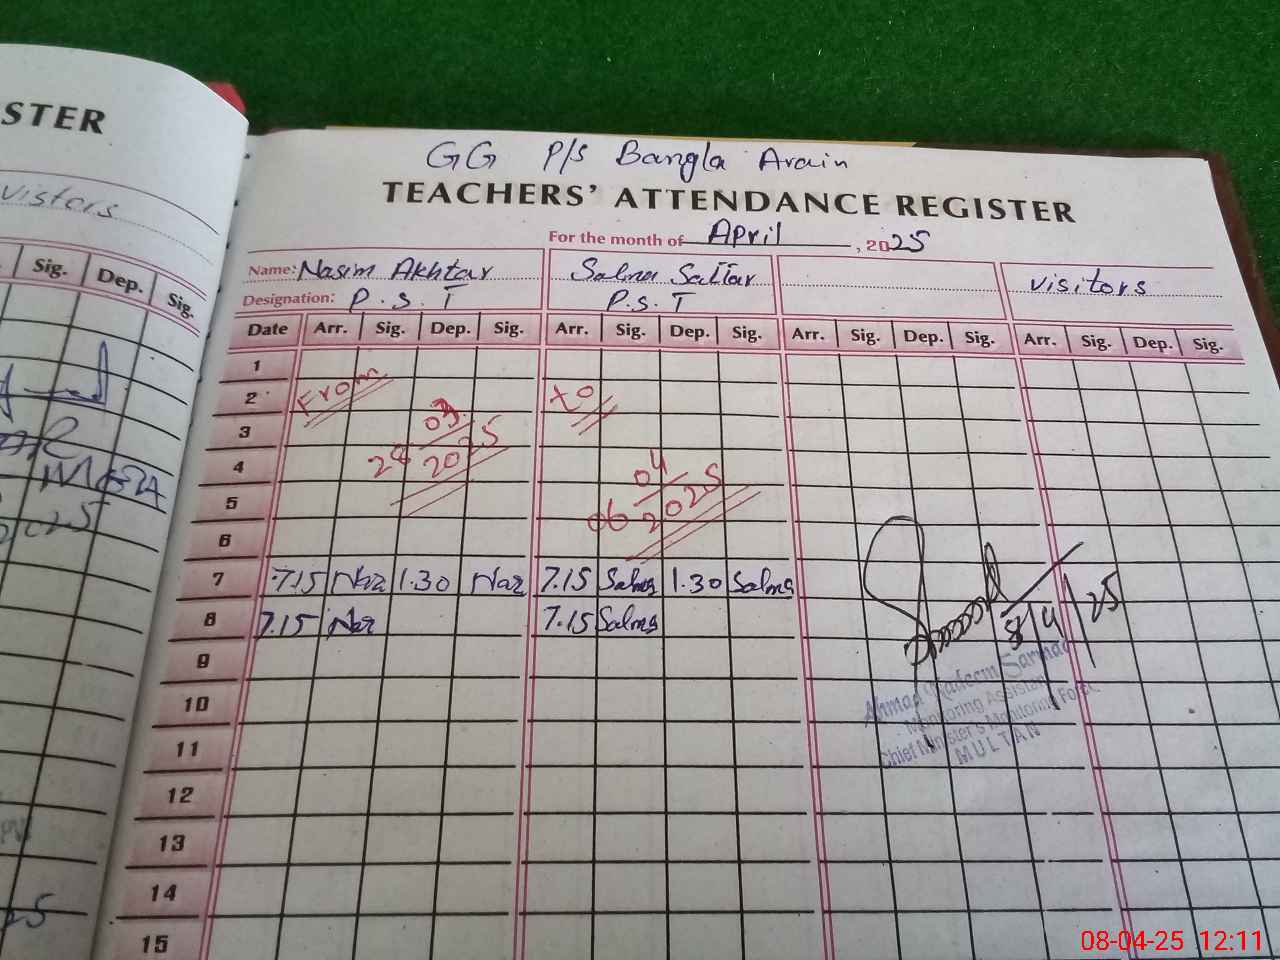 STER
visitors
Sig. Dep. Sig.
GG P/s Bangla Arain
TEACHERS' ATTENDANCE REGISTER
For the month of April, 2025
Name: Nasim Akhtar Salma Sattar visitors
Designation: P.S.T P.S.T
Date Arr. Sig. Dep. Sig. Arr. Sig. Dep. Sig. Arr. Sig. Dep. Sig. Arr. Sig. Dep. Sig.
1
2 From to
3
4 28 03 2025 06 04 2025
5
6
7 7.15 Naz 1.30 Naz 7.15 Salma 1.30 Salma
8 7.15 Naz 7.15 Salma
8/4/25
9
Ahmad Nadeem Sarmad
10
Monitoring Assistant
Chief Minister's Monitoring Force
11
MULTAN
12
13
14
15
08-04-25 12:11